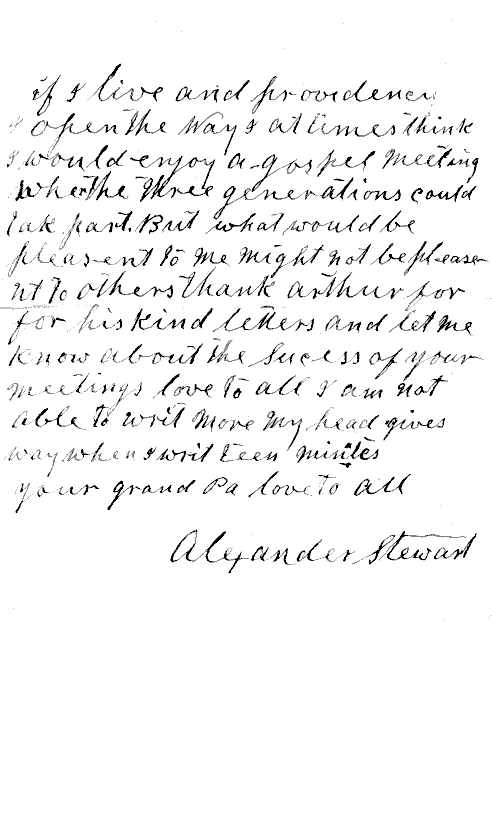 if I live and providency
I open the way I at times think
I would enjoy a gospel meeting
wher the three generations could
tak part. But what would be
pleasent to me might not be please
nt to others thank arthur for
for his kind letters and let me
know about the sucess of your
meetings love to all I am not
able to writ more my head gives
way when I writ teen minites
your grand Pa love to all
Alexander Stewart